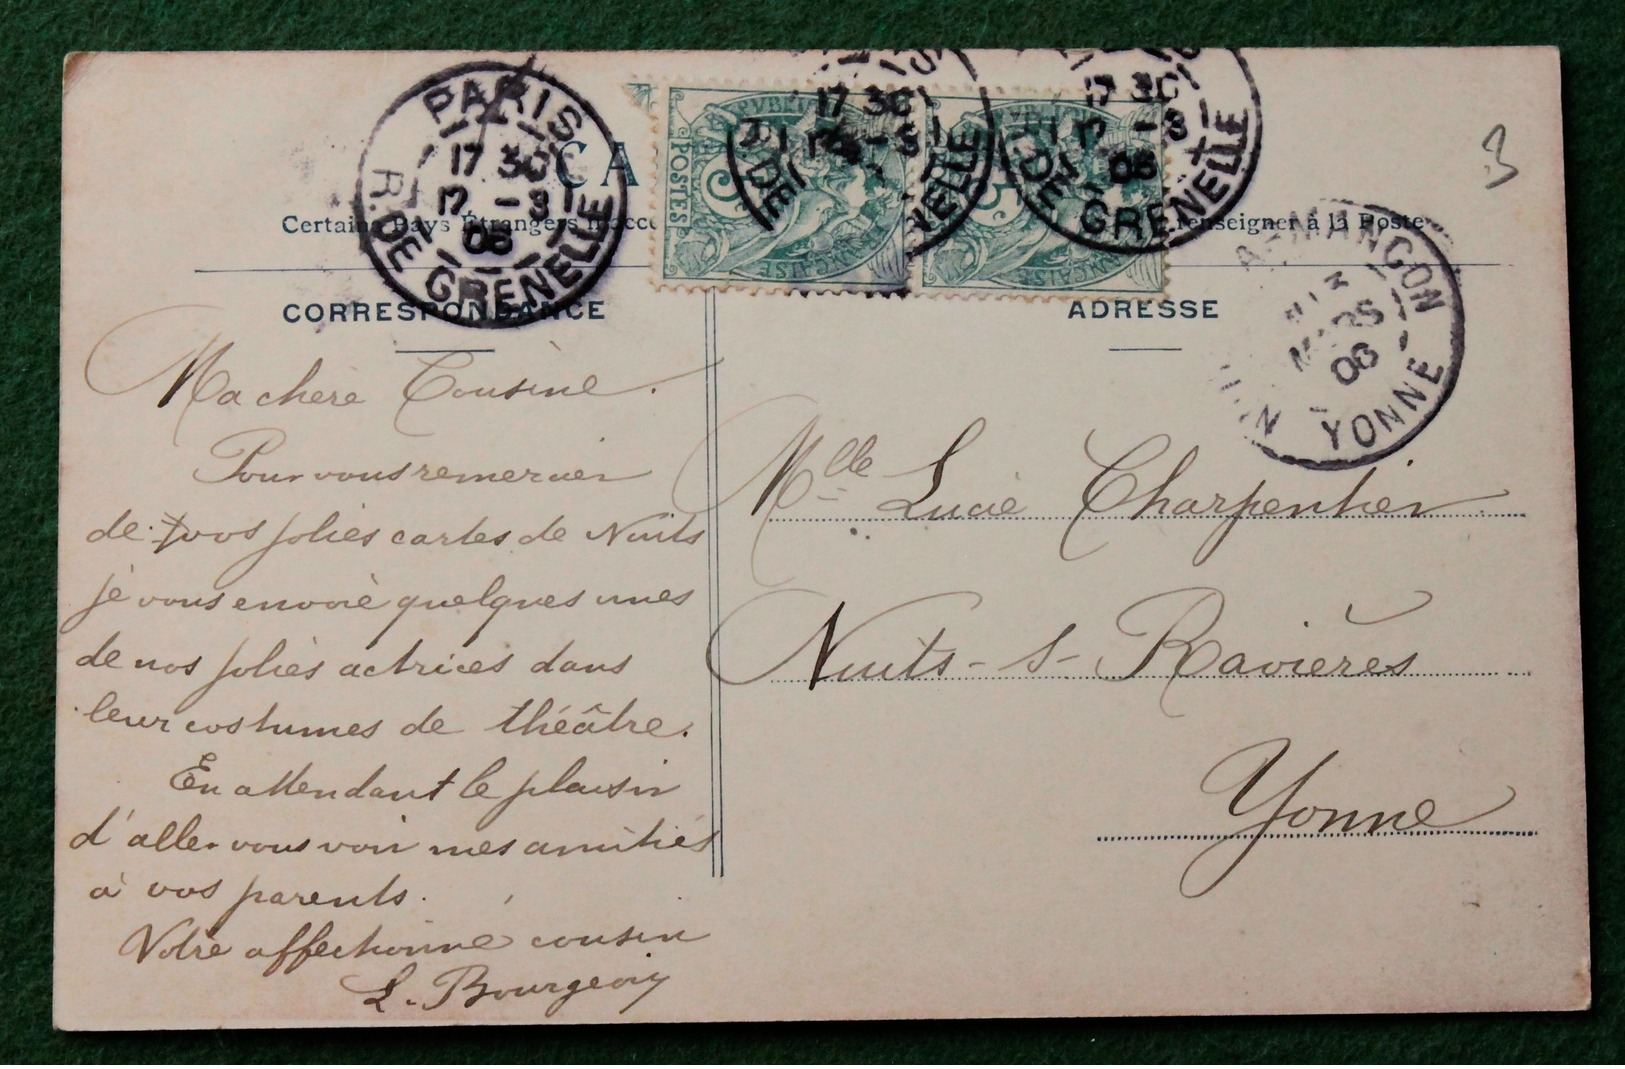 PARIS
17 30
12 -3
06
R. DE GRENELLE
CA
17 30
12 -3
DE GRENELLE
17 30
12 -3
06
R. DE GRENELLE
POSTES
5
Certains Pays Étrangers n'acce renseigner à la Poste
ARMANÇON
MARS
06
YONNE
3
CORRESPONDANCE
ADRESSE
Ma chère Cousine.
Pour vous remercier
de vos jolies cartes de Nuits
je vous envoie quelques unes
de nos jolies actrices dans
leur costumes de théâtre.
En attendant le plaisir
d'aller vous voir mes amitiés
à vos parents.
Votre affectionné cousin
L. Bourgeois
Mlle Lucie Charpentier
Nuits-s-Ravières
Yonne